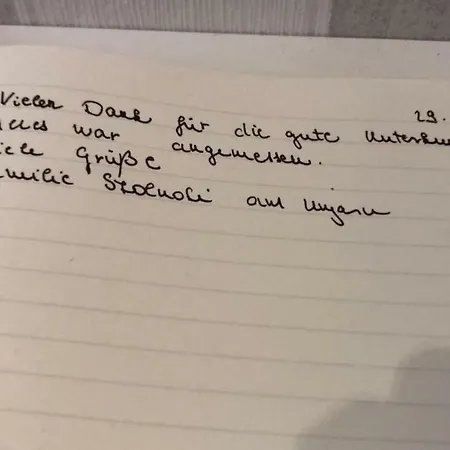 29.
Vielen Dank für die gute Unterkun
lles war angemessen.
iele Grüße
amilie Szolnoki aus Ungarn